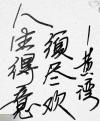 人生得意
须尽欢
—黄